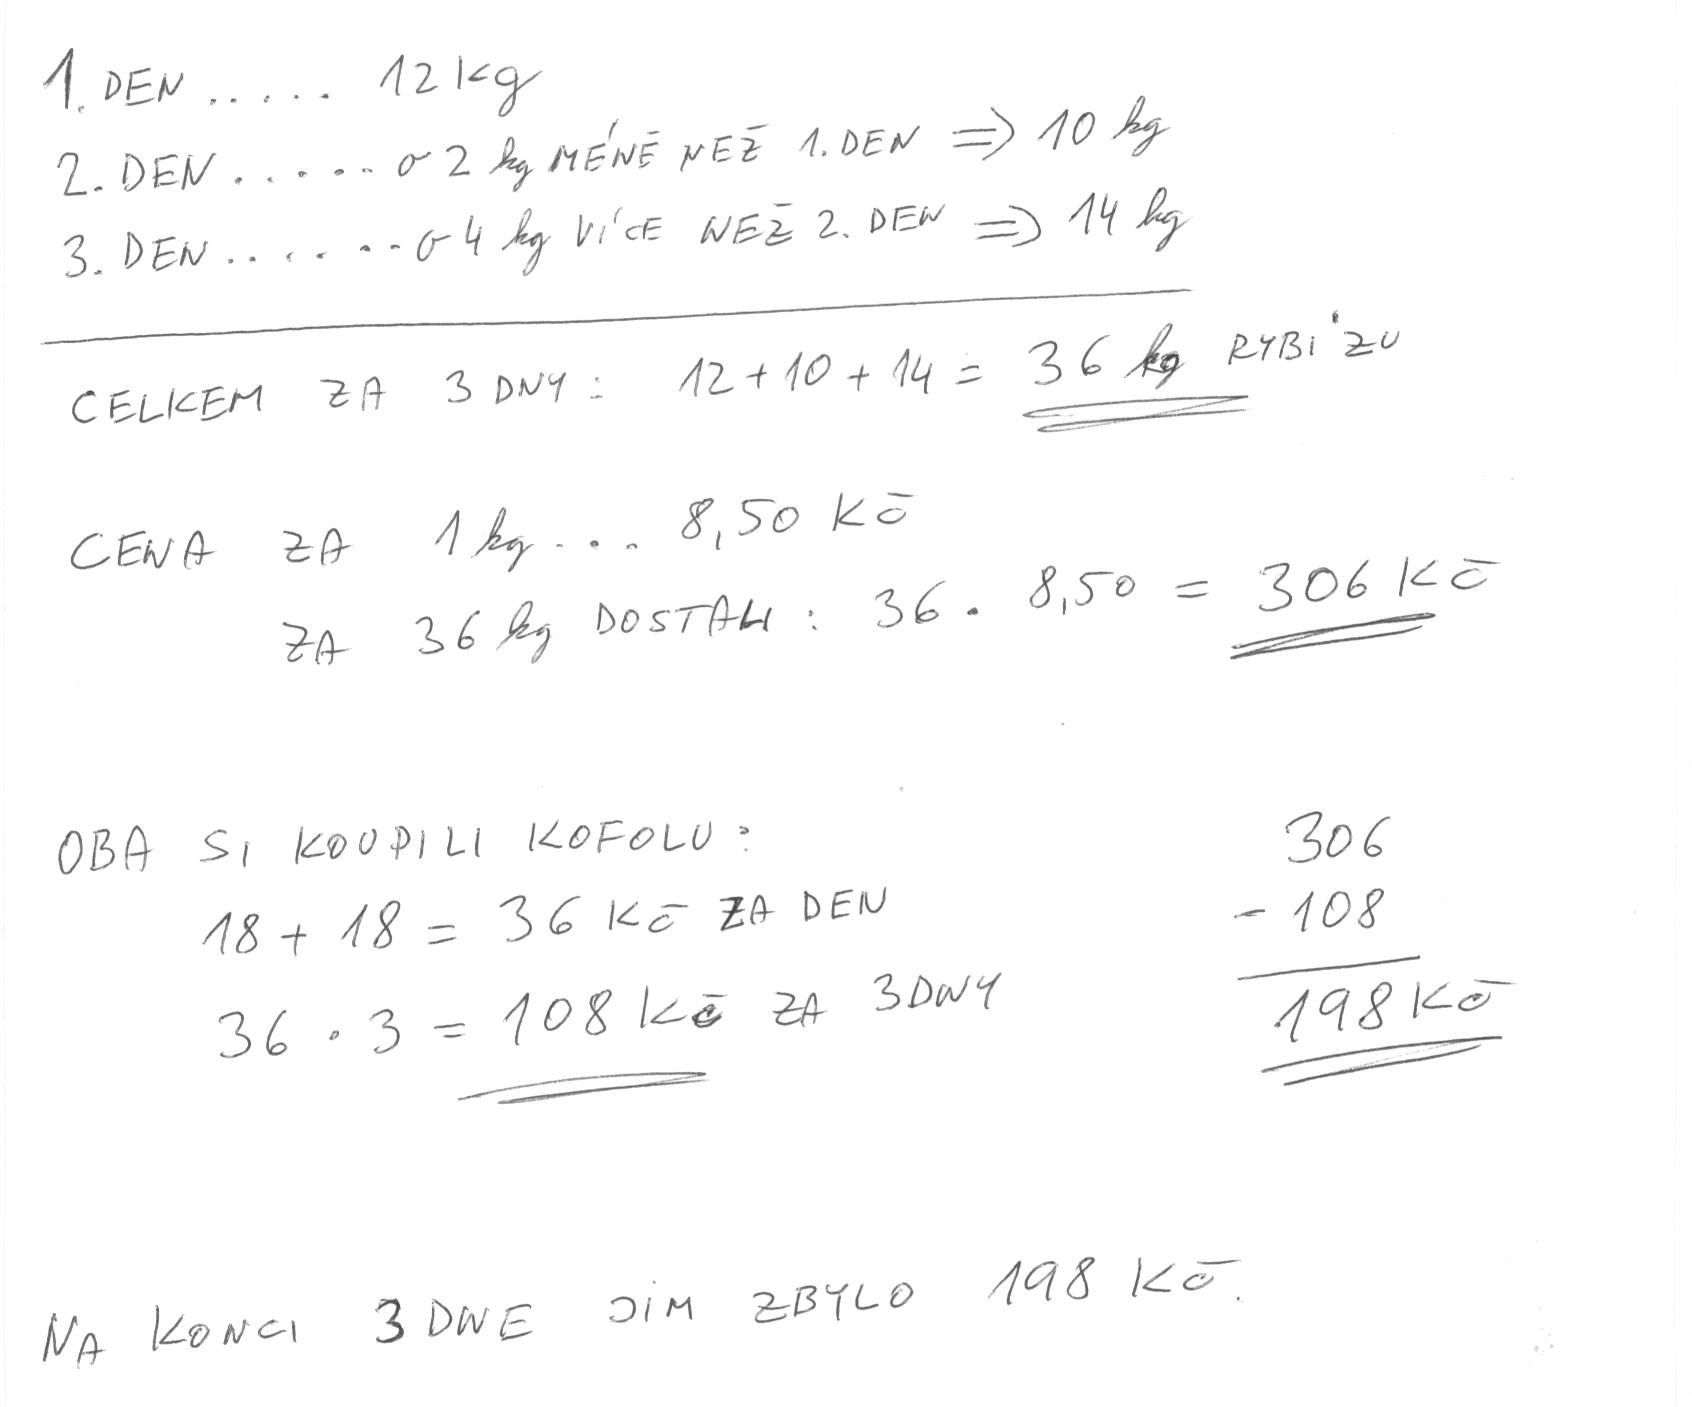 1. DEN ..... 12 kg
2. DEN ...... o 2 kg MÉNĚ NEŽ 1. DEN => 10 kg
3. DEN ....... o 4 kg VÍCE NEŽ 2. DEN => 14 kg
CELKEM ZA 3 DNY: 12 + 10 + 14 = 36 kg RYBÍZU
CENA ZA 1 kg ... 8,50 Kč
ZA 36 kg DOSTALI: 36 . 8,50 = 306 Kč
OBA SI KOUPILI KOFOLU:
18 + 18 = 36 Kč ZA DEN
36 . 3 = 108 Kč ZA 3 DNY
306
- 108
198 Kč
NA KONCI 3 DNE JIM ZBYLO 198 Kč.